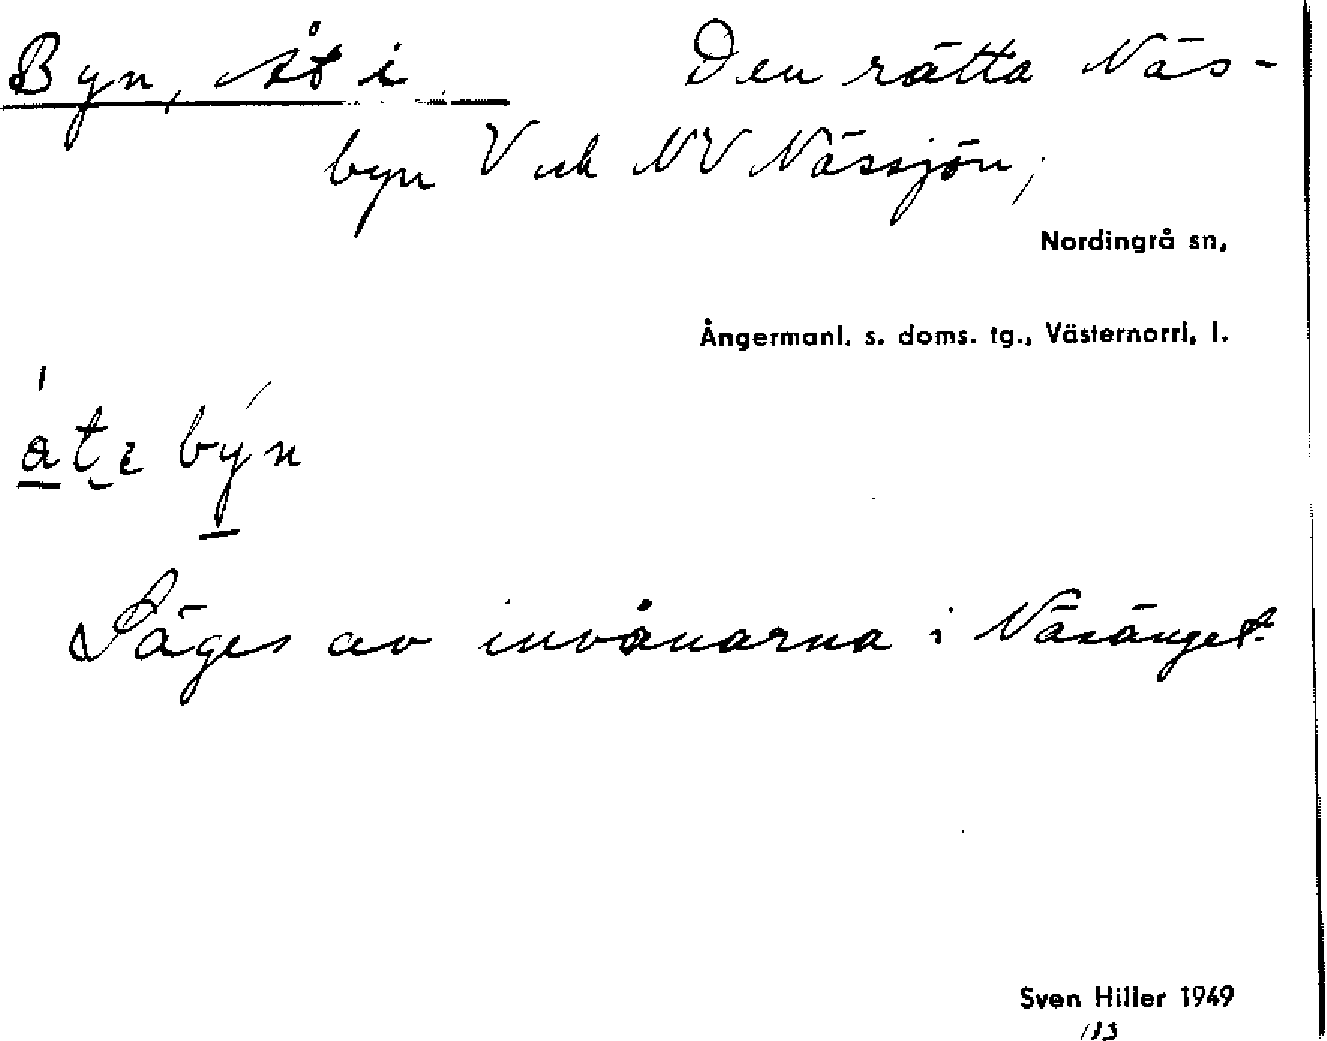 Byn, Åt i Den rätta Näs-
byn V och NV Nässjön;
Nordingrå sn,
Ångermanl. s. doms. tg., Västernorrl. l.
Säges av invånarna i Näsänget.
Sven Hiller 1949